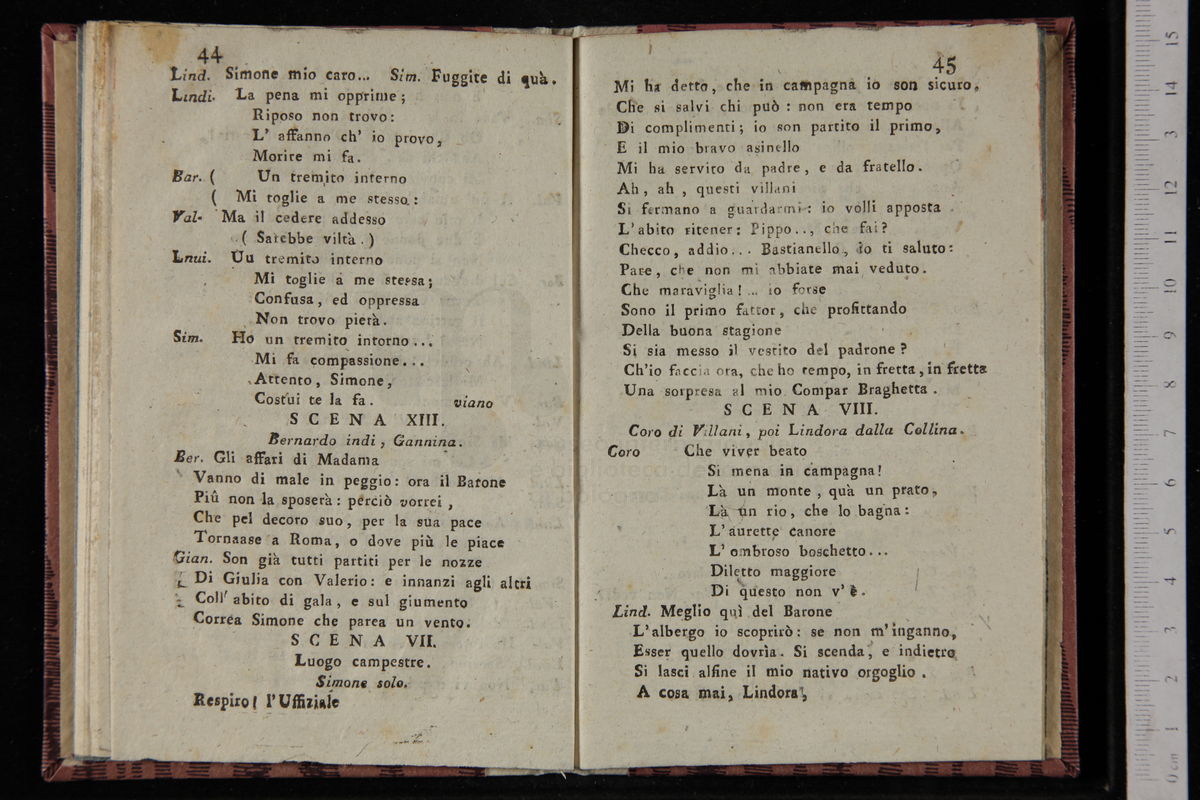 44
Lind. Simone mio caro... Sim. Fuggite di quà.
Lindi. La pena mi opprime;
Riposo non trovo:
L' affanno ch' io provo,
Morire mi fa.
Bar. ( Un tremito interno
( Mi toglie a me stesso:
Val- Ma il cedere addesso
( Sarebbe viltà. )
Lnui. Uu tremito interno
Mi toglie a me stessa;
Confusa, ed oppressa
Non trovo pietà.
Sim. Ho un tremito intorno...
Mi fa compassione...
Attento, Simone,
Costui te la fa. viano
SCENA XIII.
Bernardo indi, Gannina.
Ber. Gli affari di Madama
Vanno di male in peggio: ora il Barone
Più non la sposerà: perciò vorrei,
Che pel decoro suo, per la sua pace
Tornaase a Roma, o dove più le piace
Gian. Son già tutti partiti per le nozze
Di Giulia con Valerio: e innanzi agli altri
Coll' abito di gala, e sul giumento
Correa Simone che parea un vento.
SCENA VII.
Luogo campestre.
Simone solo.
Respiro! l'Uffiziale
45
Mi ha detto, che in campagna io son sicuro,
Che si salvi chi può: non era tempo
Di complimenti; io son partito il primo,
E il mio bravo asinello
Mi ha servito da padre, e da fratello.
Ah, ah, questi villani
Si fermano a guardarmi: io volli apposta
L'abito ritener: Pippo.., che fai?
Checco, addio... Bastianello, io ti saluto:
Pare, che non mi abbiate mai veduto.
Che maraviglia! ... io forse
Sono il primo fattor, che profittando
Della buona stagione
Si sia messo il vestito del padrone?
Ch'io faccia ora, che ho tempo, in fretta, in fretta
Una sorpresa al mio Compar Braghetta.
SCENA VIII.
Coro di Villani, poi Lindora dalla Collina.
Coro Che viver beato
Si mena in campagna!
Là un monte, quà un prato,
Là un rio, che lo bagna:
L'aurette canore
L'ombroso boschetto...
Diletto maggiore
Di questo non v'è.
Lind. Meglio quì del Barone
L'albergo io scoprirò: se non m'inganno,
Esser quello dovrìa. Si scenda, e indietro
Si lasci alfine il mio nativo orgoglio.
A cosa mai, Lindora,
15
14
13
12
11
10
9
8
7
6
5
4
3
2
1
0 cm